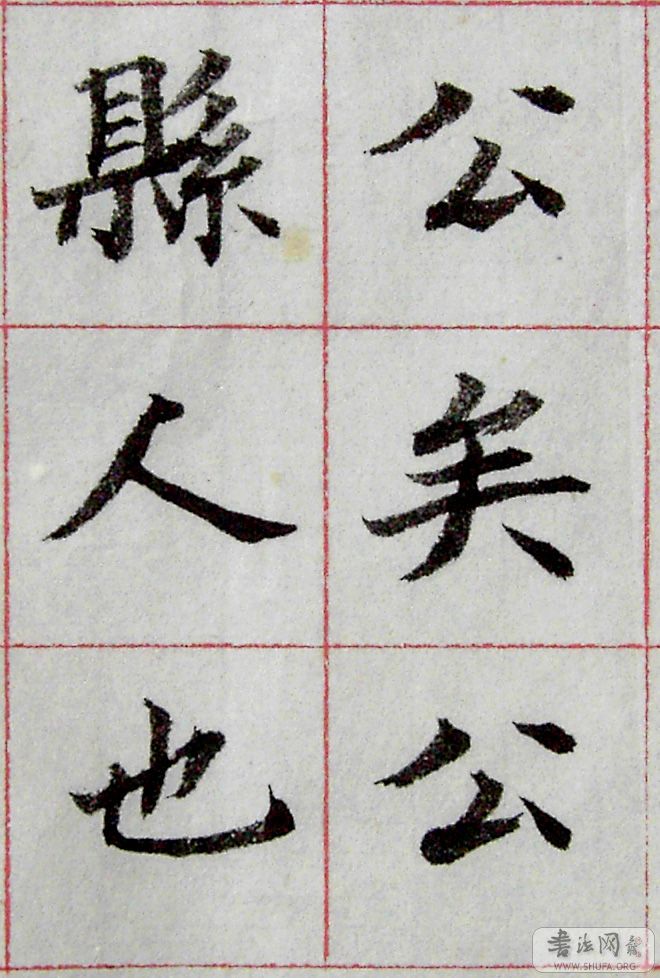 公矣公
縣人也
书法网
WWW.SHUFA.ORG